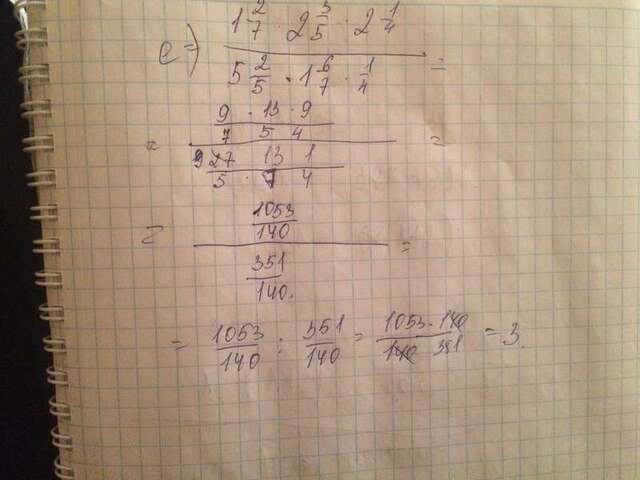 e) 1 2/7 · 2 3/5 · 2 1/4
5 2/5 · 1 6/7 · 1/4 =
= 9 · 13 · 9
7 5 4 =
27 13 1
5 · 7 4
= 1053/140
351/140. =
= 1053/140 : 351/140 = 1053 · 140 / 140 351 = 3.